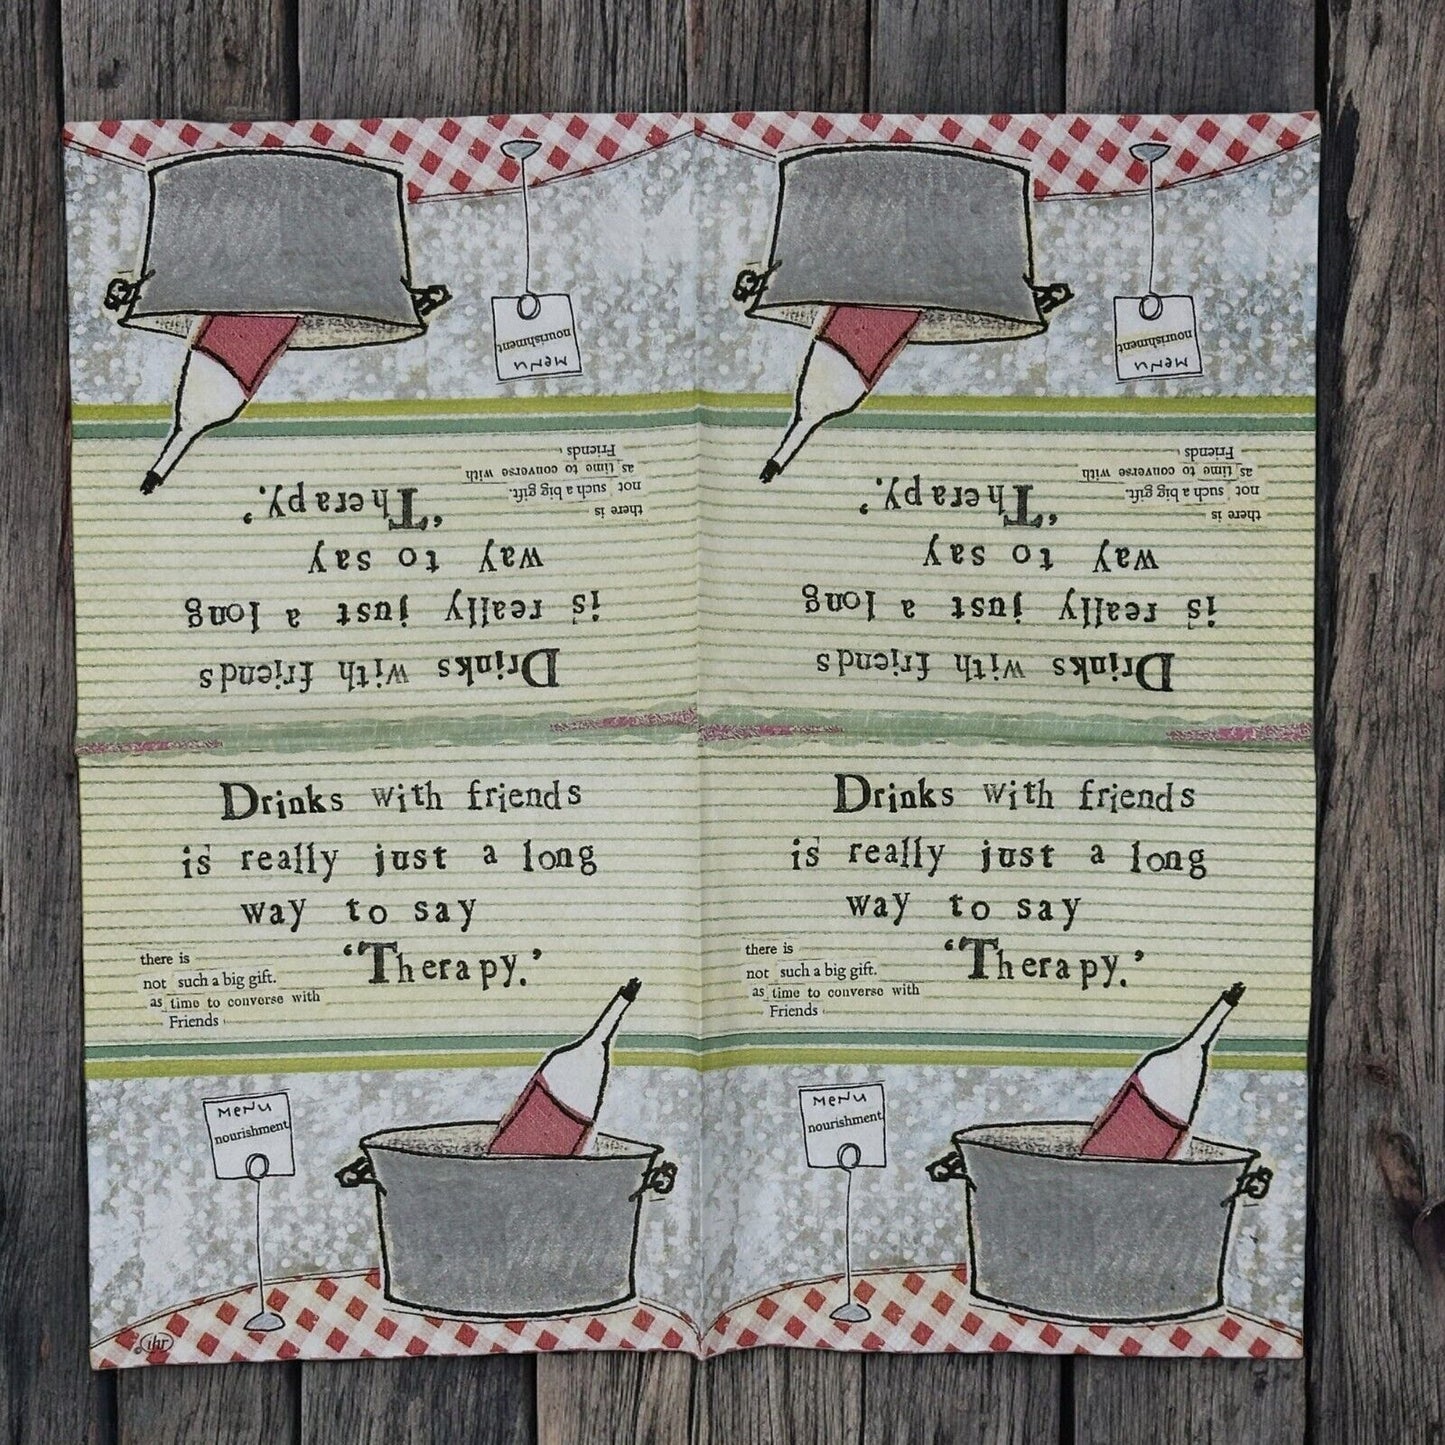 MENU
nourishment
MENU
nourishment
there is
not such a big gift.
as time to converse with
Friends
there is
not such a big gift.
as time to converse with
Friends
Drinks with friends
is really just a long
way to say
'Therapy.'
Drinks with friends
is really just a long
way to say
'Therapy.'
Drinks with friends
is really just a long
way to say
'Therapy.'
there is
not such a big gift.
as time to converse with
Friends
Drinks with friends
is really just a long
way to say
'Therapy.'
there is
not such a big gift.
as time to converse with
Friends
MENU
nourishment
MENU
nourishment
ihr